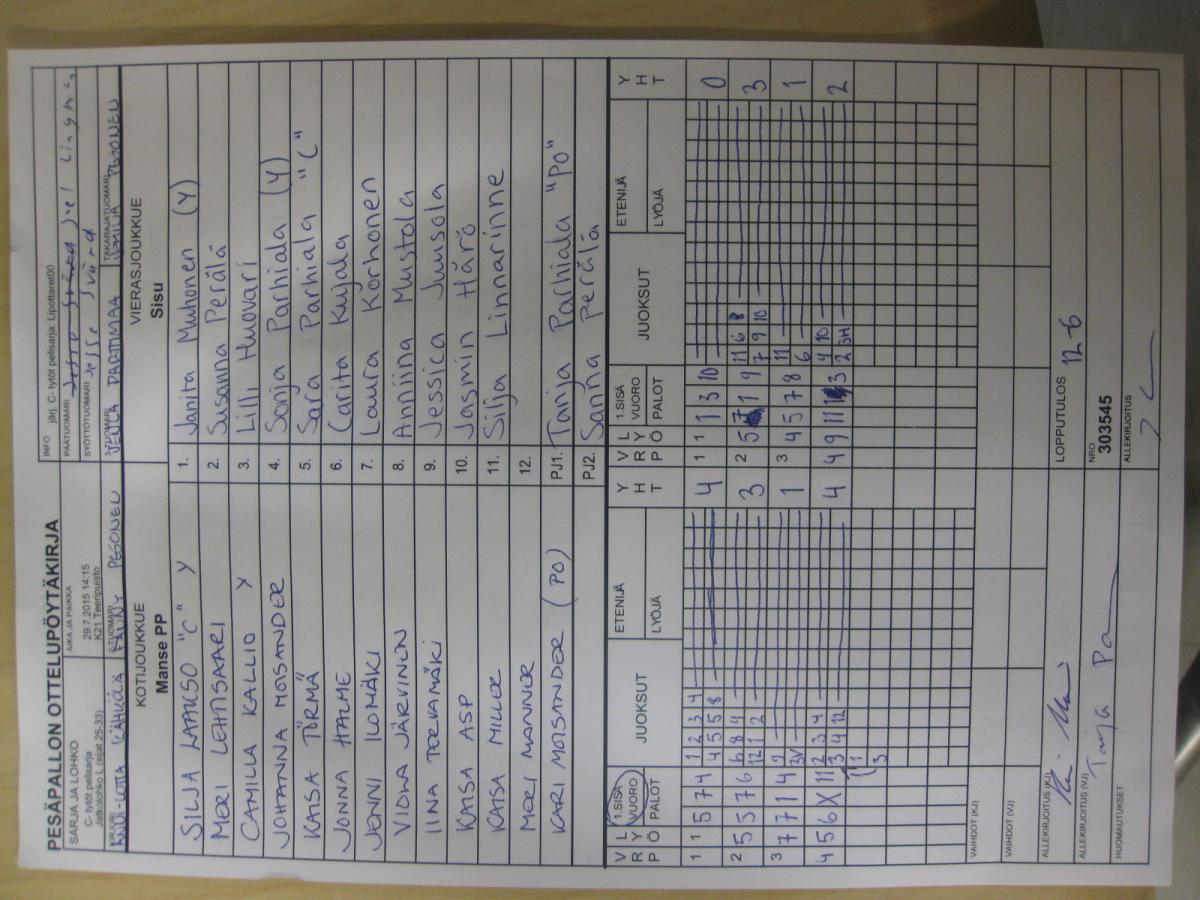 PESÄPALLON OTTELUPÖYTÄKIRJA
SARJA JA LOHKO
C- tytöt pelisarja
Jatkolohko L (sijat 25-33)
AIKA JA PAIKKA
29.7.2015 14:15
K21 Teeripuisto
INFO järj. C- tytöt pelisarja: Lipottaret00
PÄÄTUOMARI
SYÖTTÖTUOMARI Jesse Svärd
PESONEN
JENLA PARTIMAA
PESONEN
KOTIJOUKKUE
Manse PP
VIERASJOUKKUE
Sisu
SILJA LAAKSO "C" Y
MERI LEHTISAARI
CAMILLA KALLIO Y
JOHANNA MOISANDER
KAISA TÖRMÄ
JONNA HALME
JENNI ILOMÄKI
VIONA JÄRVINEN
IINA TERVAMÄKI
KAISA ASP
KAISA MILLER
MERI MANNER
KARI MOISANDER (PO)
1. Janita Muhonen (Y)
2. Susanna Perälä
3. Lilli Huovari
4. Sonja Parhiala (Y)
5. Sara Parhiala "C"
6. Carita Kujala
7. Laura Korhonen
8. Anniina Mustola
9. Jessica Juusola
10. Jasmin Härö
11. Silja Linnarinne
12.
PJ1. Tanja Parhiala "PO"
PJ2. Sanna Perälä
VRP LYÖ 1.SISÄ VUORO PALOT JUOKSUT ETENIJÄ LYÖJÄ YHT
VRP LYÖ 1.SISÄ VUORO PALOT JUOKSUT ETENIJÄ LYÖJÄ YHT
1 1 5 7 4 1 2 3 4 4
4 5 5 8
2 5 3 7 6 6 8 9 3
12 1 2
3 7 7 1 4 9 1
3V
4 5 6 X 11 2 3 4 4
3 4 12
1
3
1 1 1 3 10 0
2 5 1 9 11 6 8 3
7 9 10
3 4 5 7 8 11 1
6
4 4 9 11 3 4 10 2
2 3H
VAIHDOT (KJ)
VAIHDOT (VJ)
ALLEKIRJOITUS (KJ)
ALLEKIRJOITUS (VJ) Tanja
HUOMAUTUKSET
LOPPUTULOS 12-6
NRO
303545
ALLEKIRJOITUS